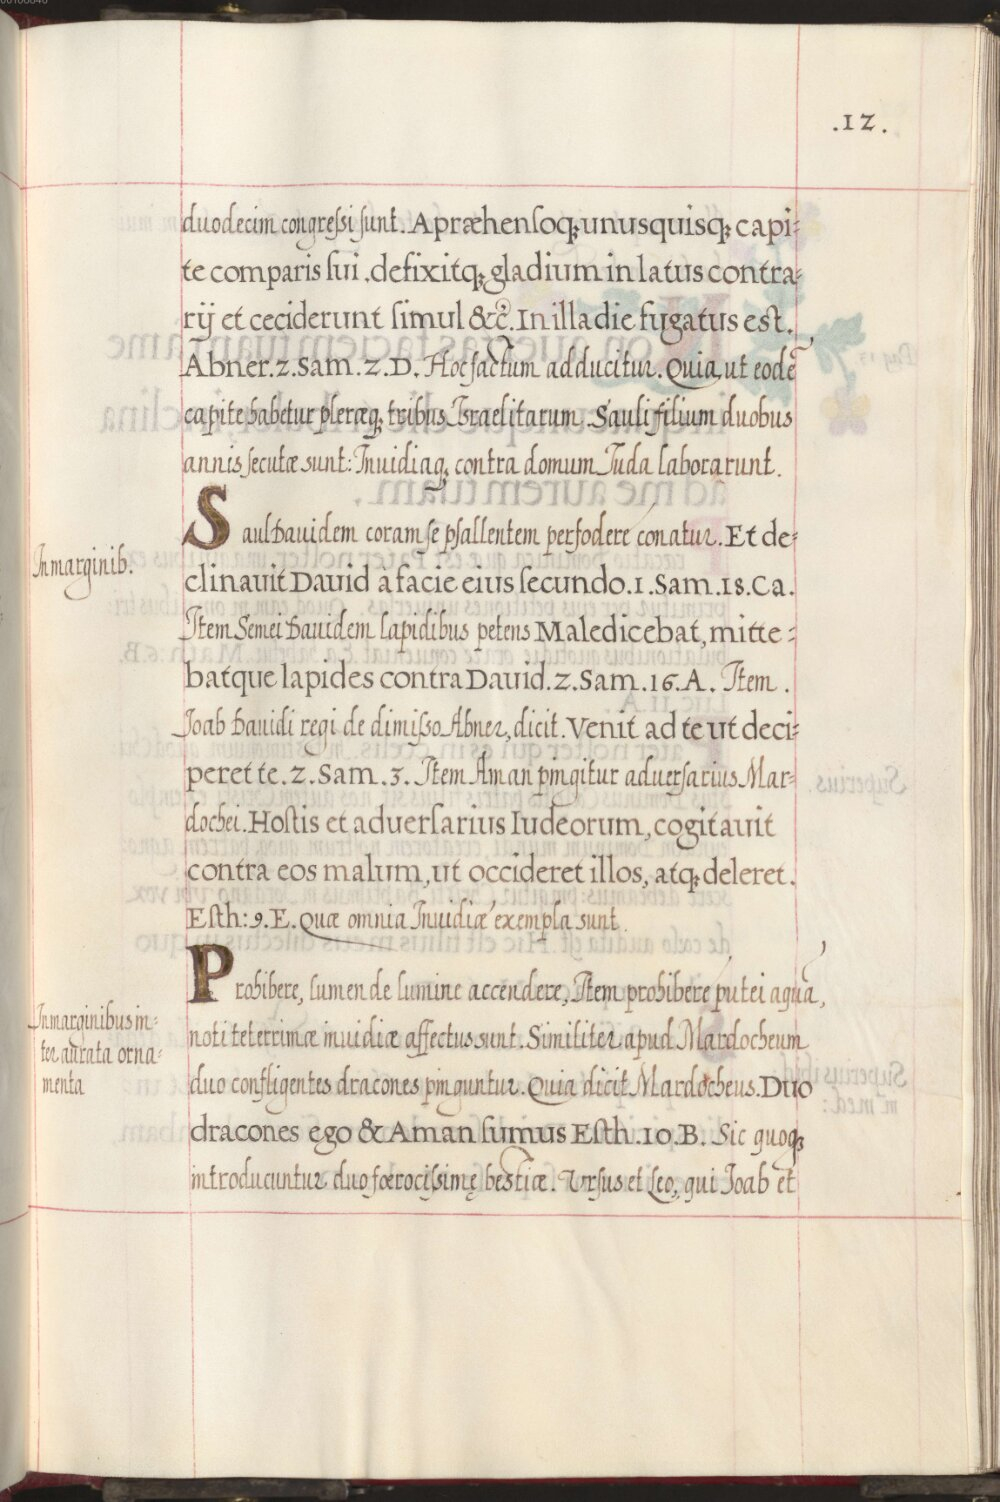 .12.
duodecim congreſsi ſunt. Apræhenſoq; unusquisq; capi-
te comparis ſui, defixitq; gladium in latus contra-
rij et ceciderunt ſimul &c̃. In illa die fugatus est.
Abner. 2. Sam. 2. D. Hoc factum adducitur. Quia, ut eodē
capite habetur pleræq; tribus Israelitarum Sauli filium duobus
annis ſecutæ sunt: Inuidiaq; contra domum Iuda laborarunt.
Saul Dauidem coram ſe pſallentem perfodere conatur. Et de-
In marginib.
clinauit Dauid à facie eius ſecundo. 1. Sam. 18. Ca.
Item Semei Dauidem lapidibus petens Maledicebat, mitte-
batque lapides contra Dauid. 2. Sam. 16. A. Item.
Ioab Dauidi regi de dimiſso Abner, dicit. Venit ad te ut deci-
peret te. 2. Sam. 3. Item Aman pingitur aduerſarius Mar-
dochei. Hoſtis et aduerſarius Iudeorum, cogitauit
contra eos malum, ut occideret illos, atq; deleret.
Eſth: 9. E. Quæ omnia Inuidiæ exempla sunt.
Prohibere, lumen de lumine accendere, Item prohibere putei aquā,
In marginibus in-
ter aurata orna-
menta
noti teterrimæ inuidiæ affectus sunt. Similiter apud Mardocheum
duo confligentes dracones pinguntur. Quia dicit Mardocheus. Duo
dracones ego & Aman ſumus Eſth. 10. B. Sic quoq;
introducuntur duo fœrociſsimę beſtiæ. Vrſus et Leo, qui Ioab et